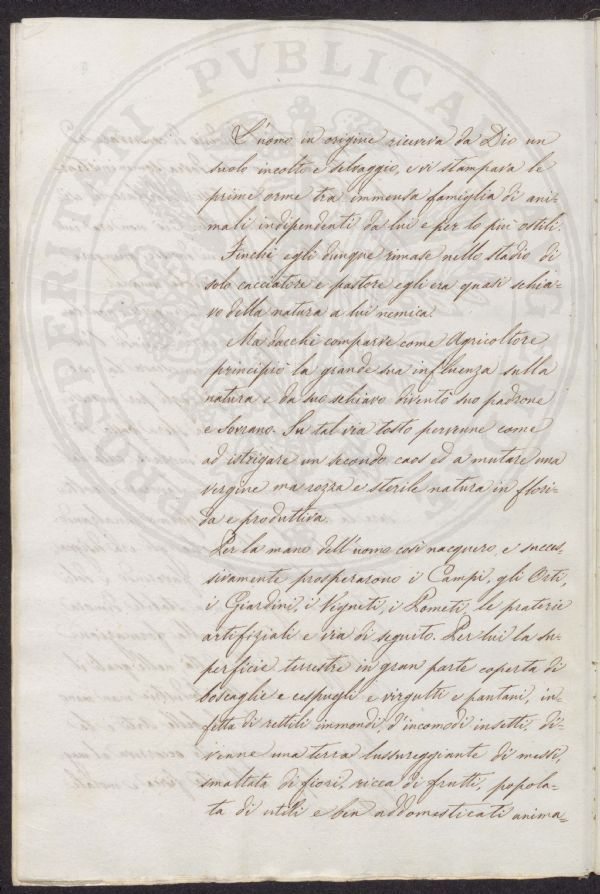 L'uomo in origine riceveva da Dio un
suolo incolto e selvaggio, e vi stampava le
prime orme tra immensa famiglia di ani-
mali indipendenti da lui e per lo più ostili.
Finchè egli dunque rimase nello stadio di
solo cacciatore e pastore egli era quasi schia-
vo della natura a lui nemica.
Ma dacchè comparve come Agricoltore
principiò la grande sua influenza sulla
natura e da suo schiavo diventò suo padrone
e Sovrano. Su tal via tosto pervenne come
ad istrigare un secondo caos ed a mutare una
vergine ma rozza e sterile natura in flori-
da e produttiva.
Per la mano dell'uomo così nacquero, e succes-
sivamente prosperarono i Campi, gli Orti,
i Giardini, i Vigneti, i Pometi, le praterie
artifiziali e via di seguito. Per lui la su-
perficie terrestre in gran parte coperta di
boscaglie e cespugli e virgulti e pantani, in-
fetta di rettili immondi, d'incomodi insetti, di-
venne una terra lussureggiante di messi,
smaltata di fiori, ricca di frutti, popola-
ta di utili e ben addomesticati anima-